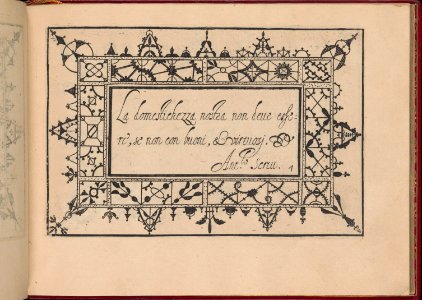 La domestichezza nostra non deue esse-
re, se non con buoni, & virtuosi.
Ant.º